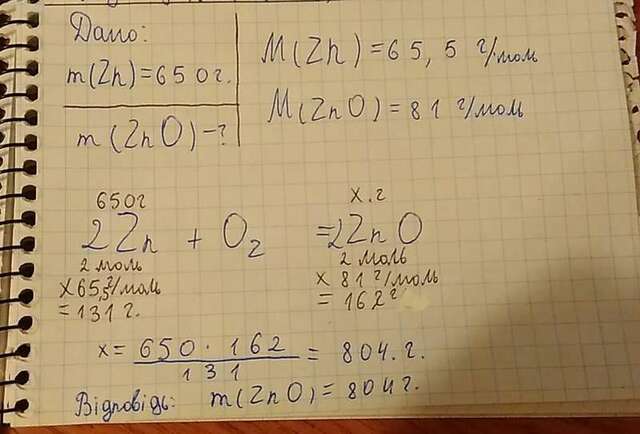 Дано:
m(Zn)=650г.
m(ZnO)-?
M(Zn)=65,5 г/моль
M(ZnO)=81 г/моль
650г
x.г
2Zn + O₂ =2ZnO
2 моль
2 моль
x65,5г/моль
x 81 г/моль
=131 г.
= 162г
x= 650·162 = 804.г.
131
Відповідь: m(ZnO)=804г.